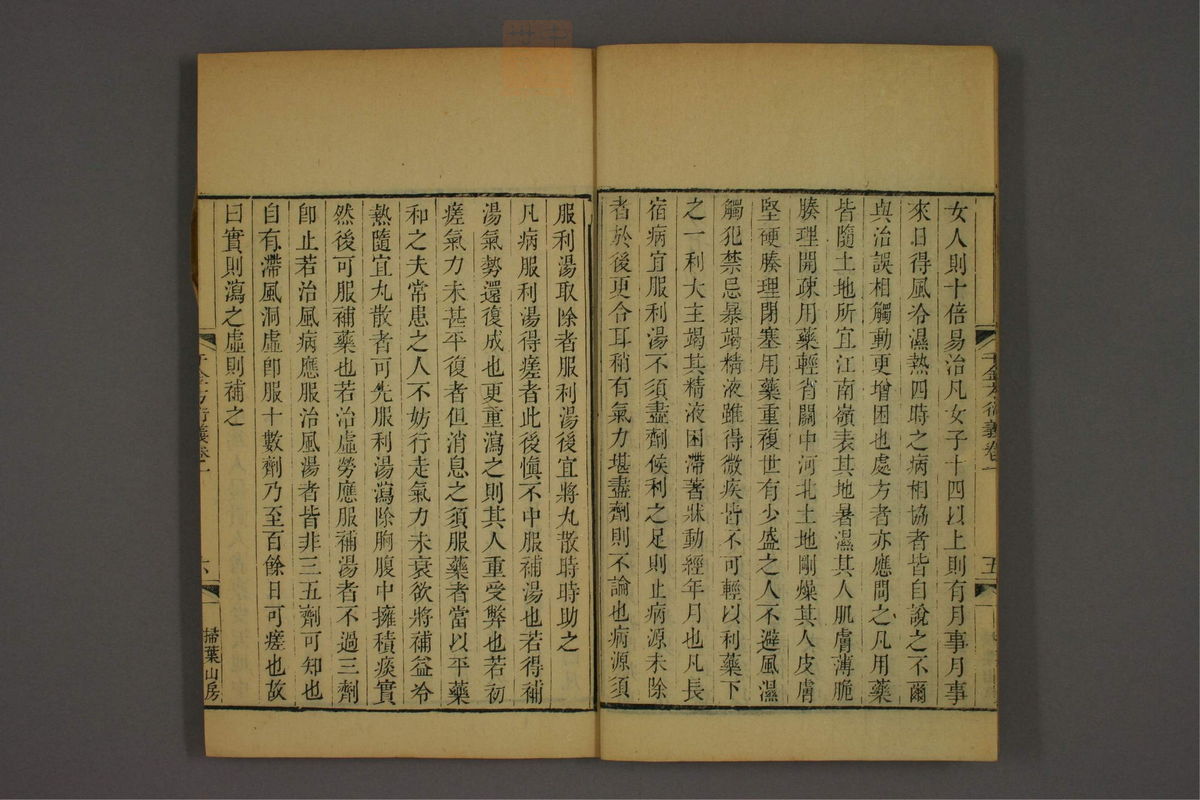 女人則十倍易治凡女子十四以上則有月事月事
來日得風冷濕熱四時之病相協者皆自說之不爾
與治誤相觸動更增困也處方者亦應問之凡用藥
皆隨土地所宜江南嶺表其地暑濕其人肌膚薄脆
腠理開疎用藥輕省關中河北土地剛燥其人皮膚
堅硬腠理閉塞用藥重複世有少盛之人不避風濕
觸犯禁忌暴竭精液雖得微疾皆不可輕以利藥下
之一利大主竭其精液困滯著牀動經年月也凡長
宿病宜服利湯不須盡劑候利之足則止病源未除
者於後更合耳稍有氣力堪盡劑則不論也病源須
千金方衍義卷一
五
服利湯取除者服利湯後宜將丸散時時助之
凡病服利湯得瘥者此後慎不中服補湯也若得補
湯氣勢還復成也更重瀉之則其人重受弊也若初
瘥氣力未甚平復者但消息之須服藥者當以平藥
和之夫常患之人不妨行走氣力未衰欲將補益冷
熱隨宜丸散者可先服利湯瀉除胸腹中擁積痰實
然後可服補藥也若治虛勞應服補湯者不過三劑
卽止若治風病應服治風湯者皆非三五劑可知也
自有滯風洞虛卽服十數劑乃至百餘日可瘥也故
曰實則瀉之虛則補之
千金方衍義卷一
六
掃葉山房